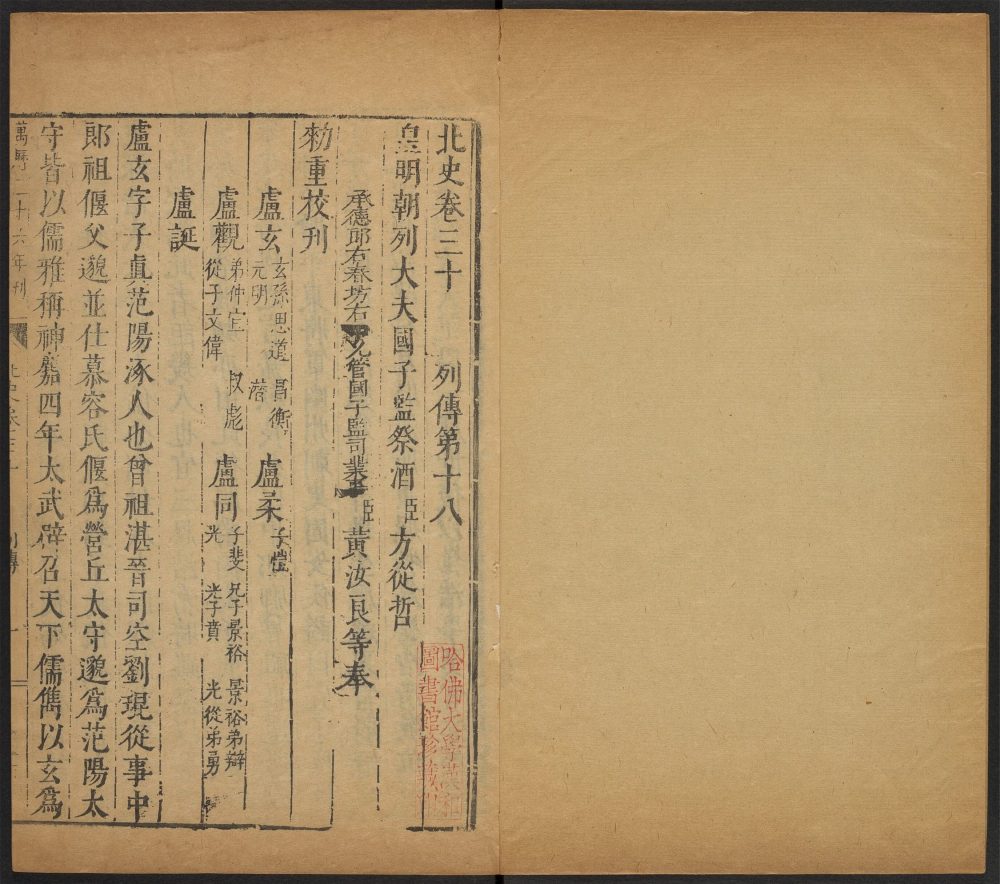 北史卷三十 列傳第十八
皇明朝列大夫國子監祭酒臣方從哲
承德郎右春坊右 管國子監司業 臣黃汝良等奉
勑重校刊
盧玄 玄孫思道 昌衡 元明 潛 盧柔 子愷
盧觀 弟仲宣 叔彪 從子文偉 盧同 子斐 兄子景裕 景裕弟辯 光 光子賁 光從弟勇
盧誕
盧玄字子真范陽涿人也曾祖湛晉司空劉琨從事中
郎祖偃父邈並仕慕容氏偃爲營丘太守邈爲范陽太
守皆以儒雅稱神䴥四年太武辟召天下儒雋以玄爲
萬曆二十六年刊
北史卷三十 列傳 一
哈佛大學漢和
圖書館珍藏印